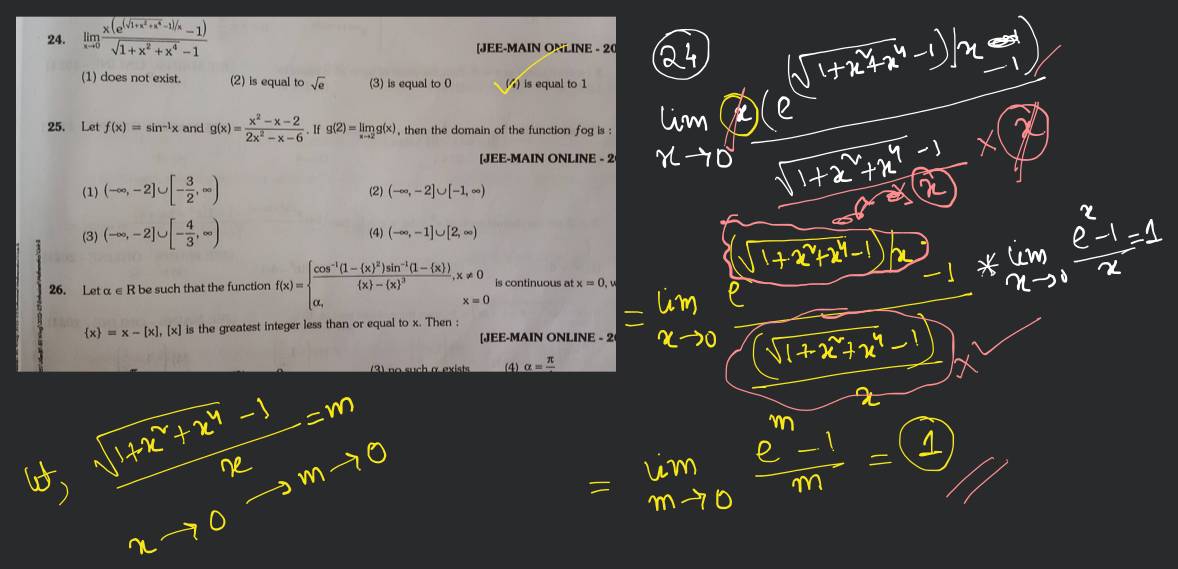 24. lim x→0 x(e^((√1+x²+x⁴ −1)/x) −1) / √1+x²+x⁴ −1
[JEE-MAIN ONLINE - 20
(1) does not exist. (2) is equal to √e (3) is equal to 0 (4) is equal to 1
25. Let f(x) = sin⁻¹x and g(x) = (x²−x−2)/(2x²−x−6). If g(2) = lim x→2 g(x), then the domain of the function fog is :
[JEE-MAIN ONLINE - 2
(1) (−∞, −2]∪[−3/2, ∞) (2) (−∞, −2]∪[−1, ∞)
(3) (−∞, −2]∪[−4/3, ∞) (4) (−∞, −1]∪[2, ∞)
26. Let α ∈ R be such that the function f(x) = { cos⁻¹(1−{x}²)sin⁻¹(1−{x}) / {x}−{x}³, x ≠ 0
α, x = 0
is continuous at x = 0, w
{x} = x − [x], [x] is the greatest integer less than or equal to x. Then :
[JEE-MAIN ONLINE - 2
(3) no such α exists (4) α = π
24
lim x→0 x(e^((√1+x²+x⁴ −1)/x) −1) / √1+x²+x⁴ −1 × x
× x
= lim x→0 e^((√1+x²+x⁴ −1)/x) −1 / (√1+x²+x⁴ −1)/x
* lim x→0 e^x −1 / x = 1
= lim m→0 e^m −1 / m = 1
let, √1+x²+x⁴ −1 / x = m
x→0 → m→0